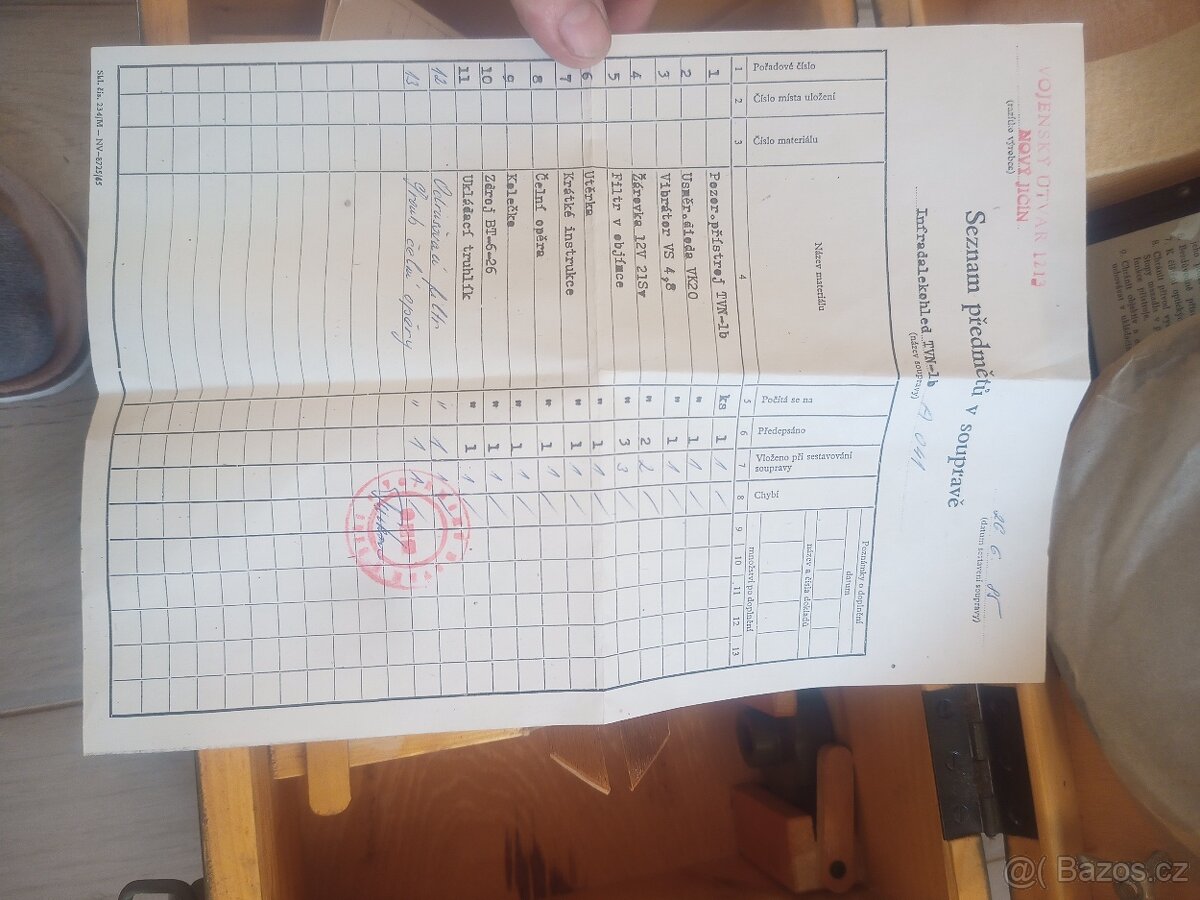 VOJENSKÝ ÚTVAR 1213
NOVÝ JIČÍN
(razítko výrobce)
26 6 85
(datum sestavení soupravy)
Seznam předmětů v soupravě
Infradalekohled TVN-1b A 041
(název soupravy)
Pořadové číslo
Číslo místa uložení
Číslo materiálu
Název materiálu
Počítá se na
Předepsáno
Vloženo při sestavování soupravy
Chybí
Poznámky o doplnění
datum
název a čísla dokladů
množství po doplnění
1 2 3 4 5 6 7 8 9 10 11 12 13
1 Pozor.přístroj TVN-1b ks 1 1 /
2 Usměr.dioda VK20 " 1 1 /
3 Vibrátor VS 4,8 " 1 1 /
4 Žárovka 12V 21Sv " 2 2 /
5 Filtr v objímce " 3 3 /
6 Utěrka " 1 1 /
7 Krátké instrukce " 1 1 /
8 Čelní opěra " 1 1 /
9 Kolečko " 1 1 /
10 Zdroj BT-6-26 " 1 1 /
11 Ukládací truhlík " 1 1 /
12 Odrušovací filtr " 1 1
13 Šroub čelní opěry " 1 1
Skl. čís. 234/M — NV-8725/65
@( Bazos.cz